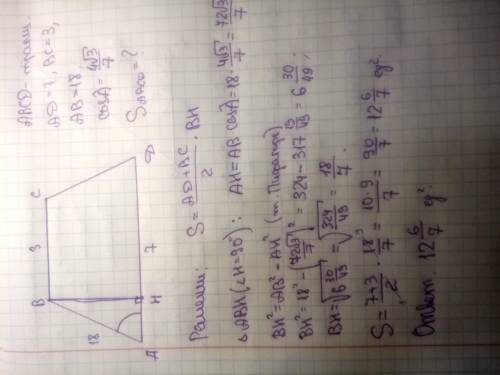 ABCD - трапец
AD=7, BC=3,
AB=18
cosA=4√3/7
S_ABCD=?
B 3 C
18
A H 7 D
Решение: S=(AD+BC)/2 · BH
△ABH (∠H=90°): AH=AB cosA=18·4√3/7=72√3/7
BH²=AB²-AH² (т. Пифагора)
BH²=18²-(72√3/7)²=324-317 19/49=6 30/49.
BH=√(6 30/49)=√(324/49)=18/7.
S=(7+3)/2·18⁹/7=10·9/7=90/7=12 6/7 eg²
Ответ: 12 6/7 eg².